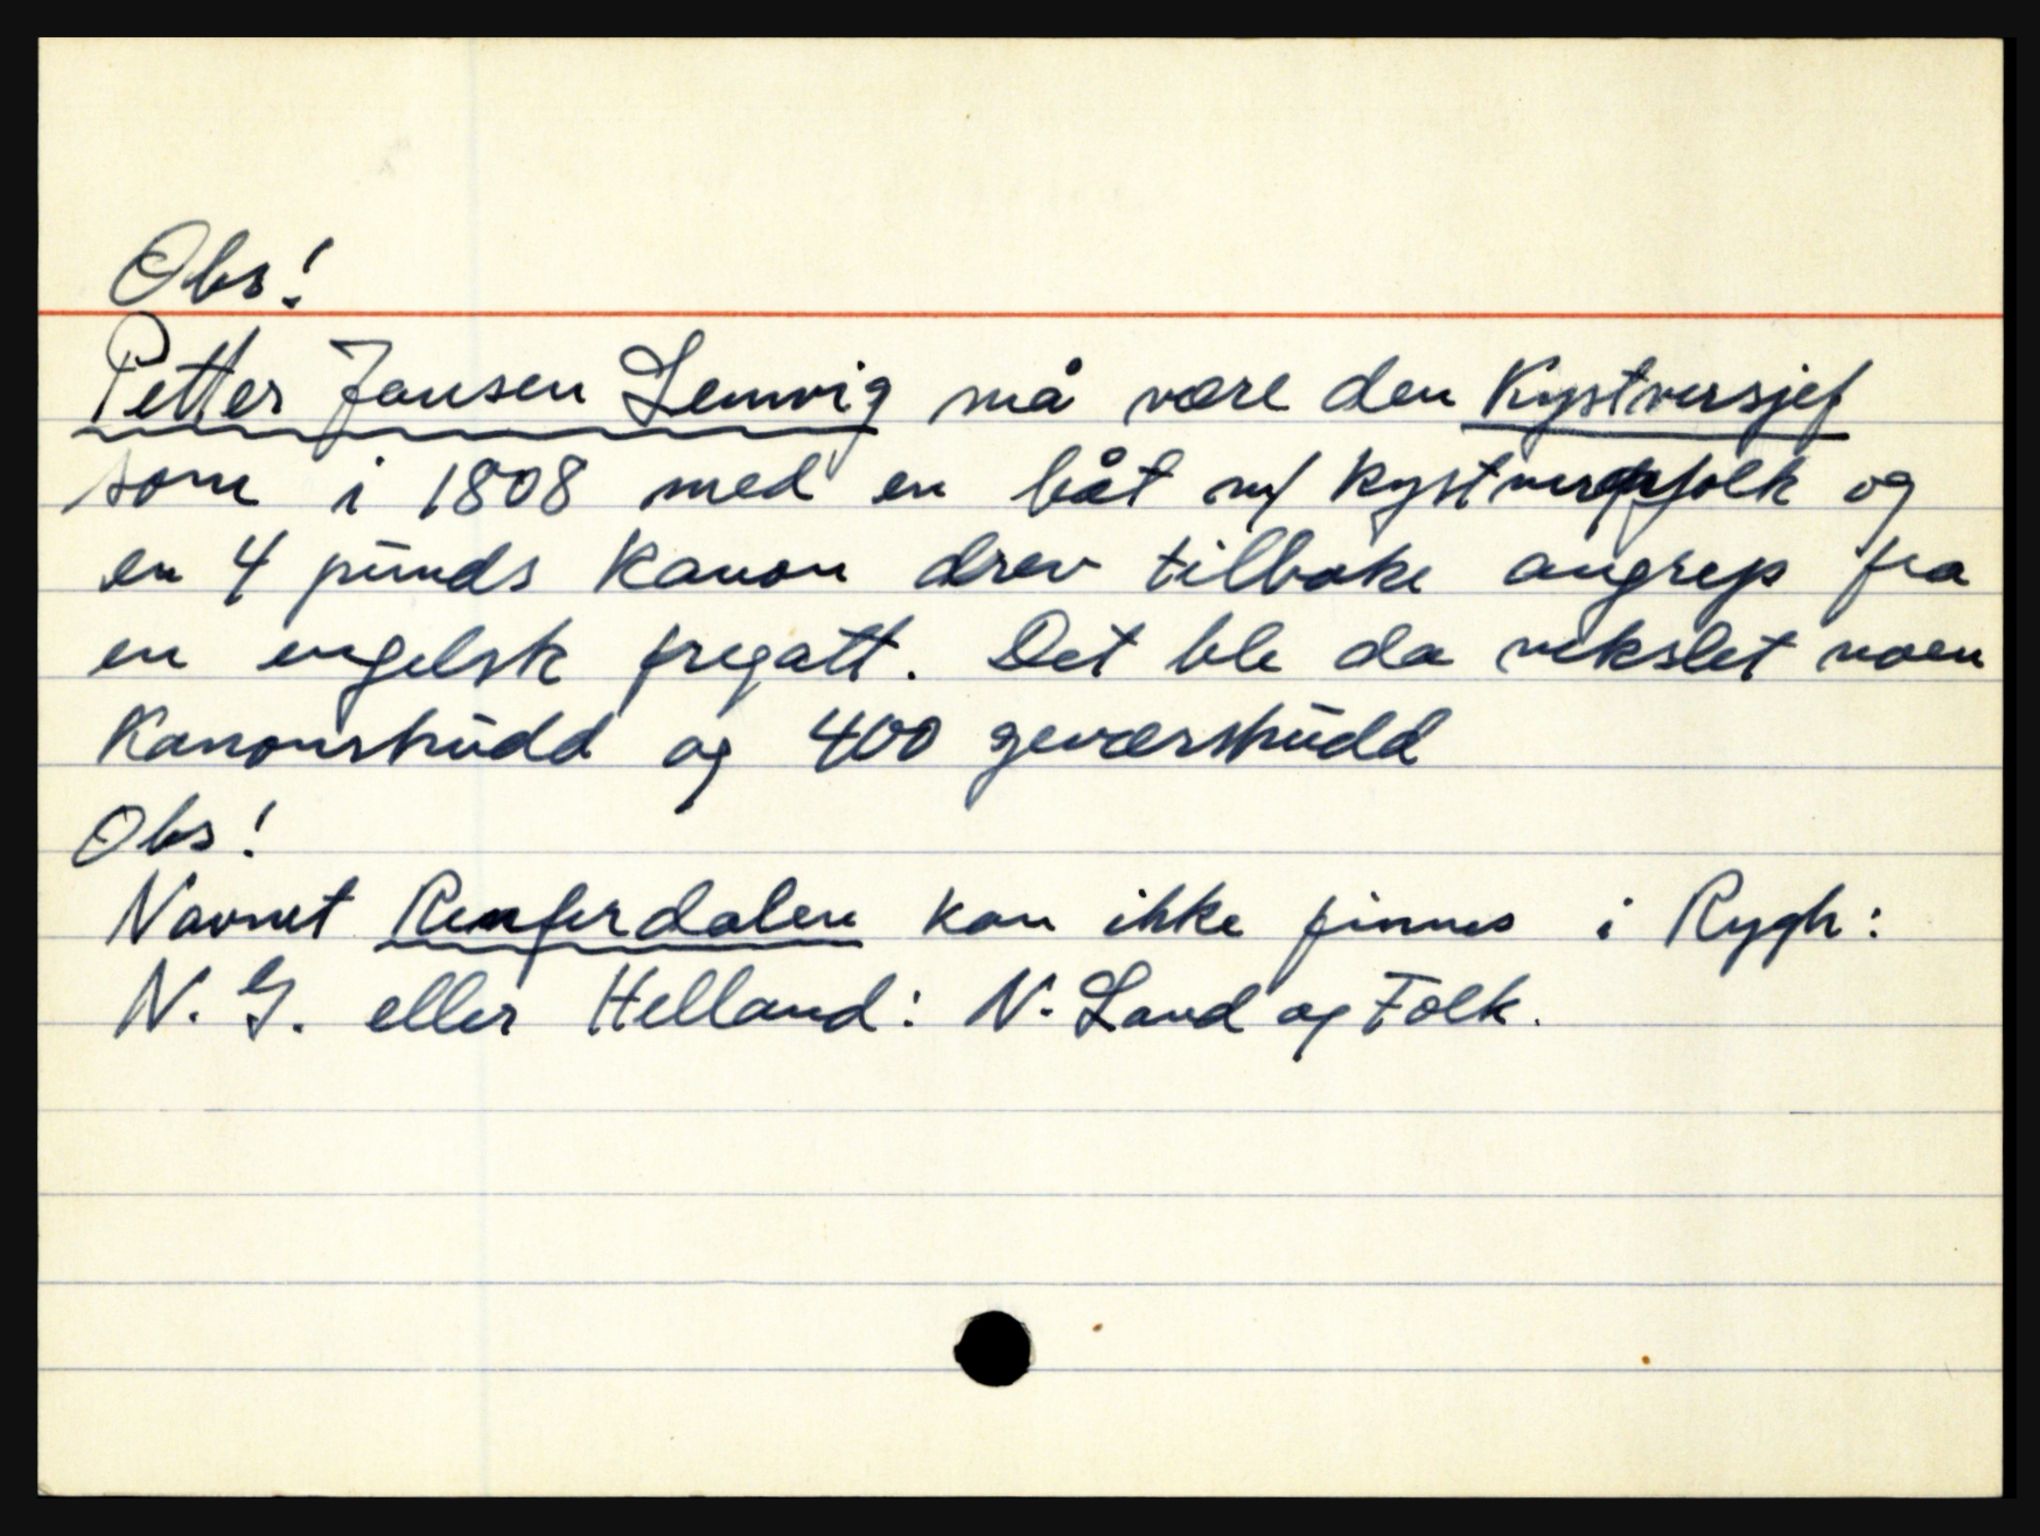 Obs!
Petter Jansen Lemvig må være den Kystversjef
som i 1808 med en båt m/ kystversfolk og
en 4 punds Kanon drev tilbake angrep fra
en engelsk fregatt. Det ble da vekslet noen
Kanonskudd og 400 geværskudd
Obs!
Navnet Renferdalen kan ikke finnes i Rygh:
N. G. eller Helland: N. Land og Folk.